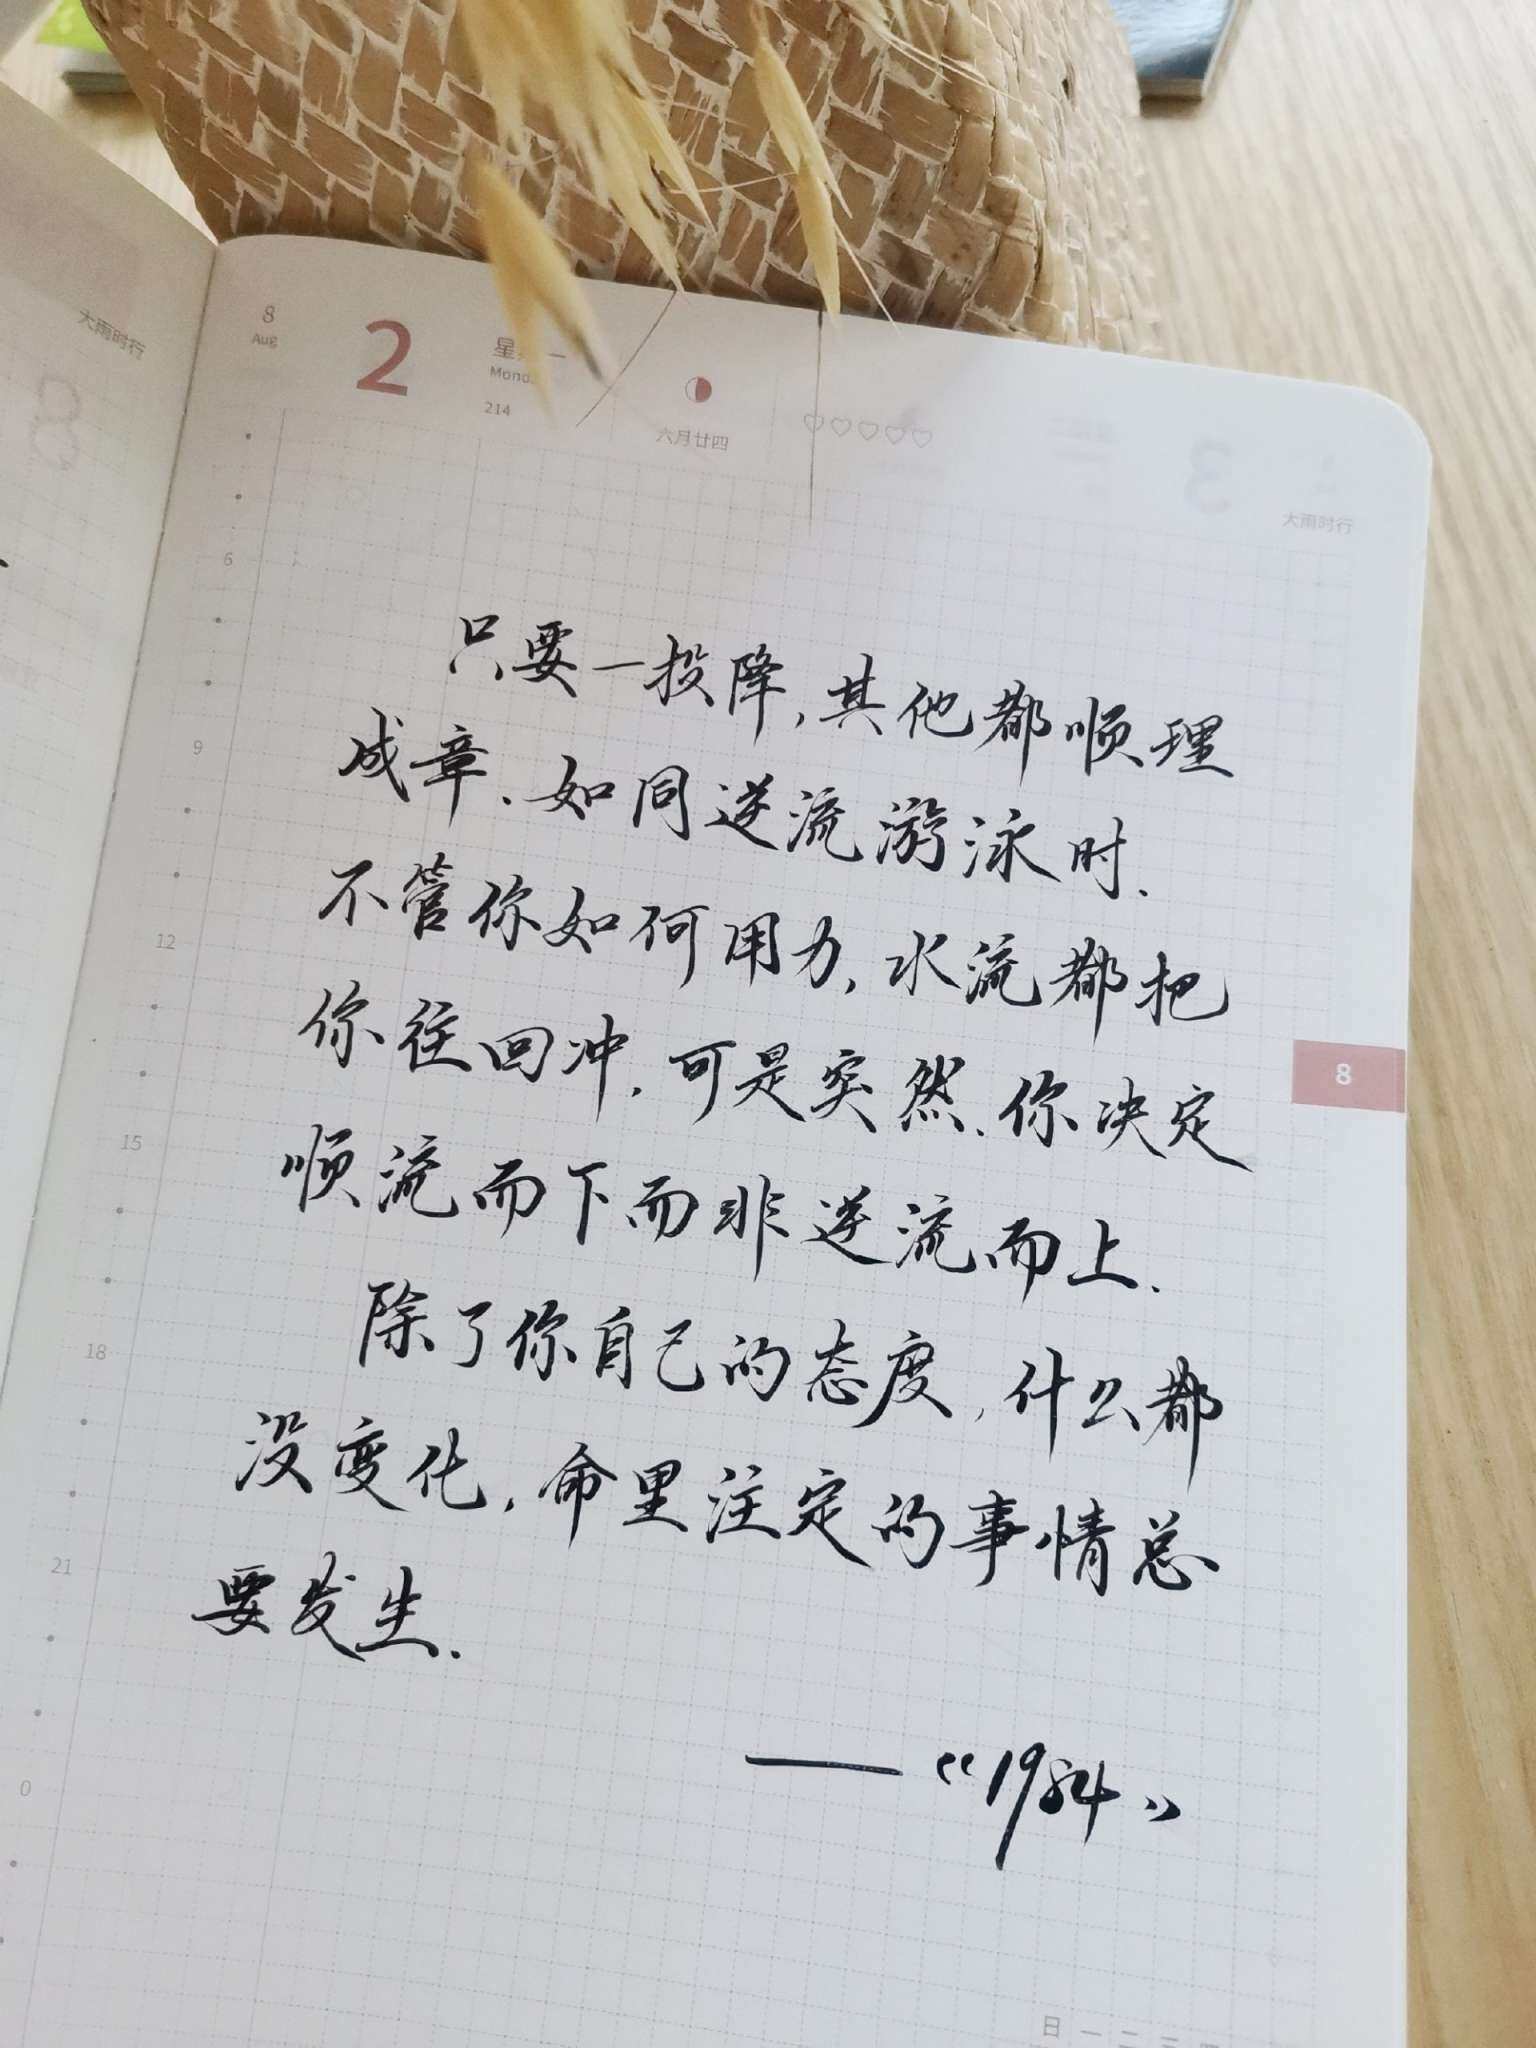 大雨时行
8
Aug
2
214
六月廿四
大雨时行
6
9
12
15
18
21
0
8
只要一投降,其他都顺理
成章.如同逆流游泳时.
不管你如何用力,水流都把
你往回冲,可是突然.你决定
顺流而下而非逆流而上.
除了你自己的态度,什么都
没变化,命里注定的事情总
要发生.
——“1984”
日 一 二 三 四